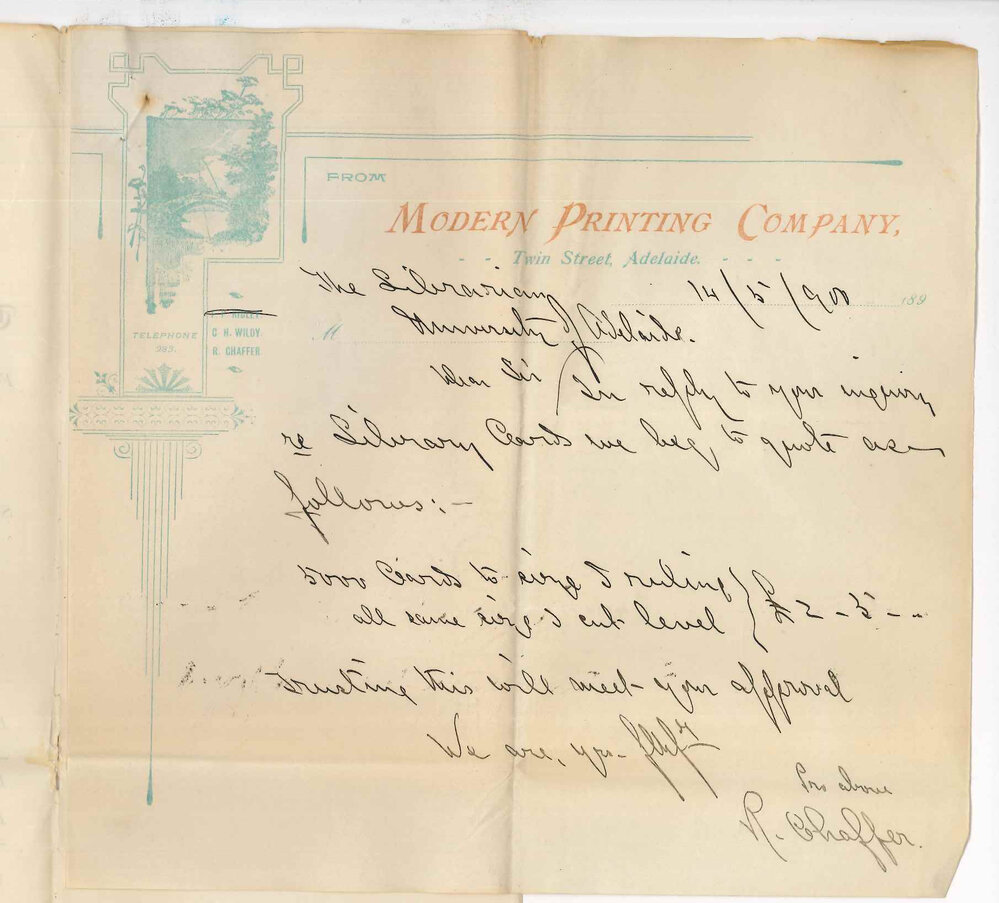 FROM
MODERN PRINTING COMPANY,
- - Twin Street, Adelaide. - - -
The Librarian 14/5/900 189
M University of Adelaide.
RIDLEY.
TELEPHONE C. H. WILDY.
983. R. CHAFFER.
Dear Sir
In reply to your inquiry
re Library Cards we beg to quote as
follows:-
5000 Cards to size & ruling } £2-5-..
all same size & cut level
Trusting this will meet your approval
We are, yrs ffly
Pro above
R. Chaffer.